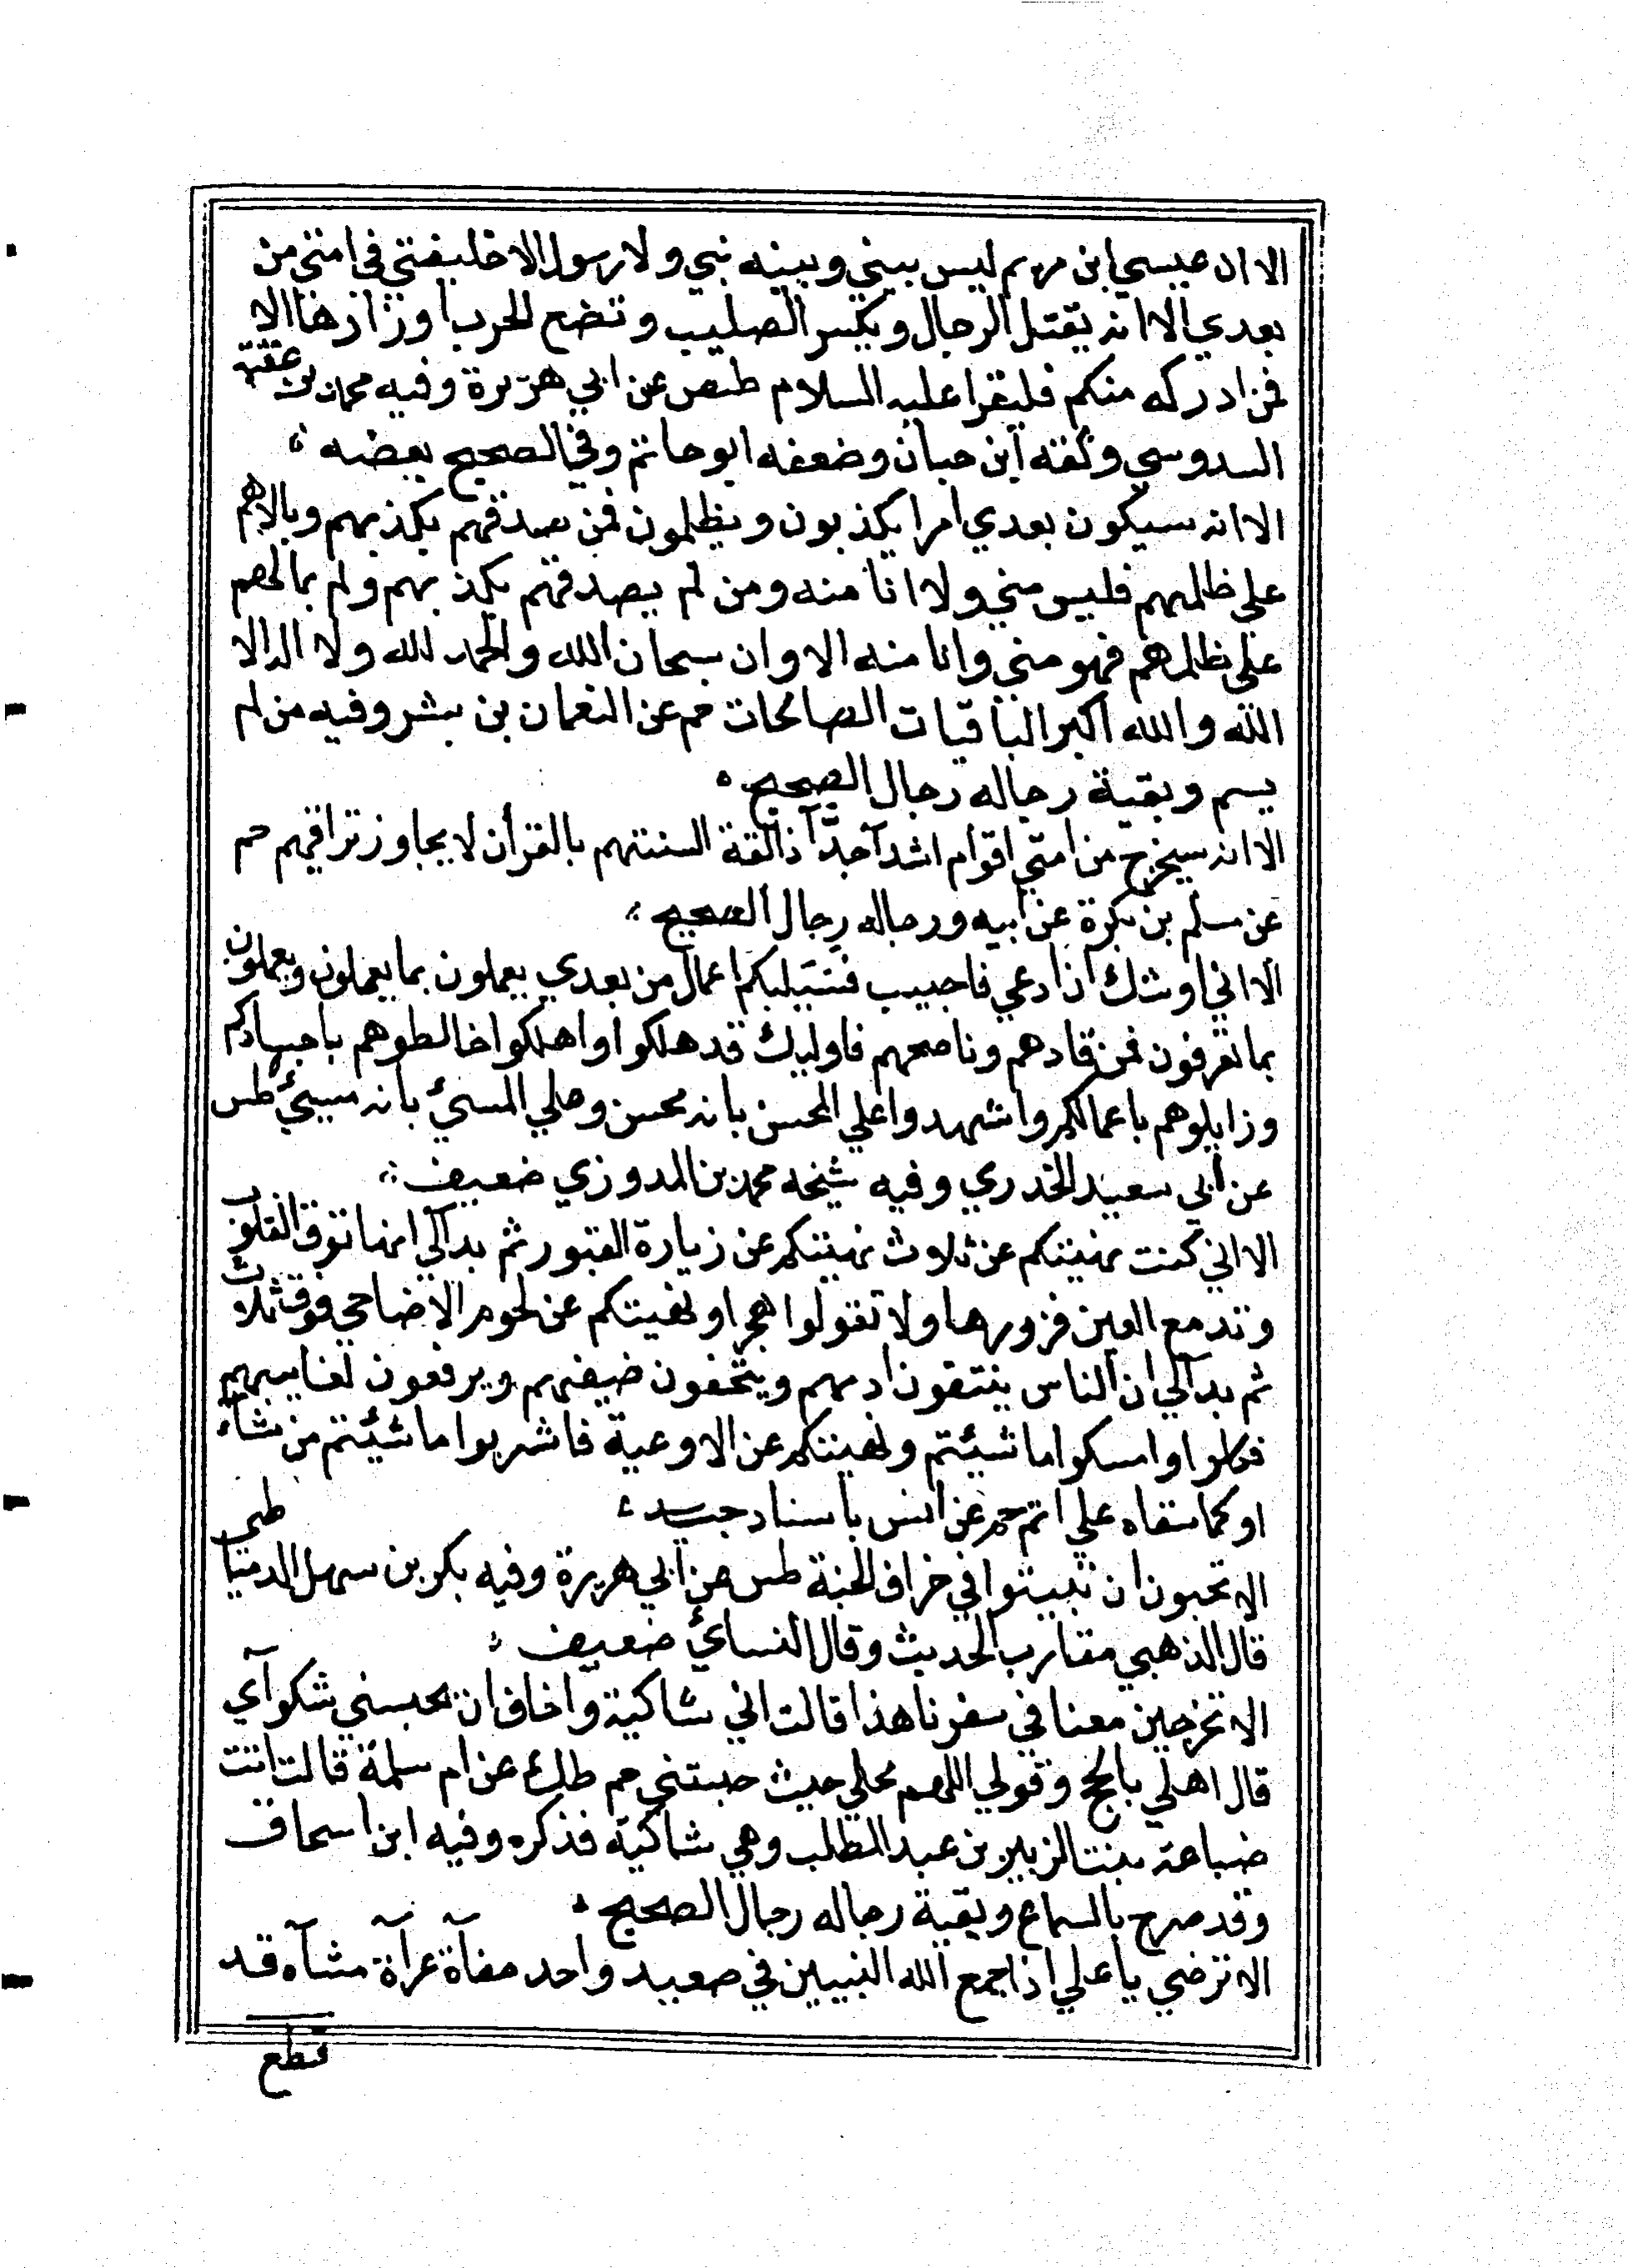 الا ان عيسي ابن مريم ليس بيني وبينه نبي ولا رسول الا خليفتي في امتي من
بعدي الا انه يقتل الرجال ويكسر الصليب وتضع الحرب اوزارها الا
فمن ادركه منكم فليقرا عليه السلام طـص عن ابي هريرة وفيه محمد بن عقبة
السدوسي وثقه ابن حبان وضعفه ابو حاتم وفي الصحيح بعضه
الا انه سيكون بعدي امرا يكذبون ويظلمون فمن صدقهم بكذبهم وبالاهم
علي ظلمهم فليس مني ولا انا منه ومن لم يصدقهم بكذبهم ولم يمالهم
علي ظلمهم فهو مني وانا منه الا وان سبحان الله والحمد لله ولا اله الا
الله والله اكبر الباقيات الصالحات حم عن النعمان بن بشر وفيه من لم
يسم وبقية رجاله رجال الصحيح
الا انه سيخرج من امتي اقوام اشدآ حدّآ ذالقة السنتهم بالقرآن لا يجاوز تراقيهم حم
عن مسلم بن بكرة عن ابيه ورجاله رجال الصحيح
الا اني اوشك ان ادعي فاجيب فسيليكم اعمال من بعدي يعملون بما يعملون ويعملون
بما تعرفون فمن قادهم وناصحهم فاوليك قد هلكوا واهلكوا خالطوهم باجسادكم
وزايلوهم باعمالكم واشهدوا علي المحسن بانه محسن وعلي المسئ بانه مسيئ طس
عن ابي سعيد الخدري وفيه شيخه محمد بن المدوزي ضعيف
الا اني كنت نهيتكم عن ثلاث نهيتكم عن زيارة القبور ثم بدالي انها ترق القلوب
وتدمع العين فزورها ولا تقولوا هجرا ونهيتكم عن لحوم الاضاحي فوق ثلاث
ثم بدالي ان الناس ينتقون ادمهم ويتحفون ضيفهم ويرفعون لغايبهم
فكلوا وامسكوا ما شيئتم ونهيتكم عن الاوعية فاشربوا ما شيئتم من شآء
اوكا سقاه علي اثم حم عن انس باسناد جيد
الا تحبون ان تبيتوا في خراف الجنة طس عن ابي هريرة وفيه بكر بن سهل الدمياطي
قال الذهبي مقارب الحديث وقال النسائ ضعيف
الا تخرجين معنا في سفرنا هذا قالت اني شاكية واخاف ان تحبسني شكوآي
قال اهلي بالحج وقولي اللهم محلي حيث حبستني حم طك عن ام سلمة قالت اتت
ضباعة بنت الزبير بن عبد المطلب وهي شاكية فذكره وفيه ابن اسحاق
وقد صرح بالسماع وبقية رجاله رجال الصحيح
الا ترضي يا علي اذا جمع الله النبيين في صعيد واحد حفآة عرآة مشآه قد
قطع